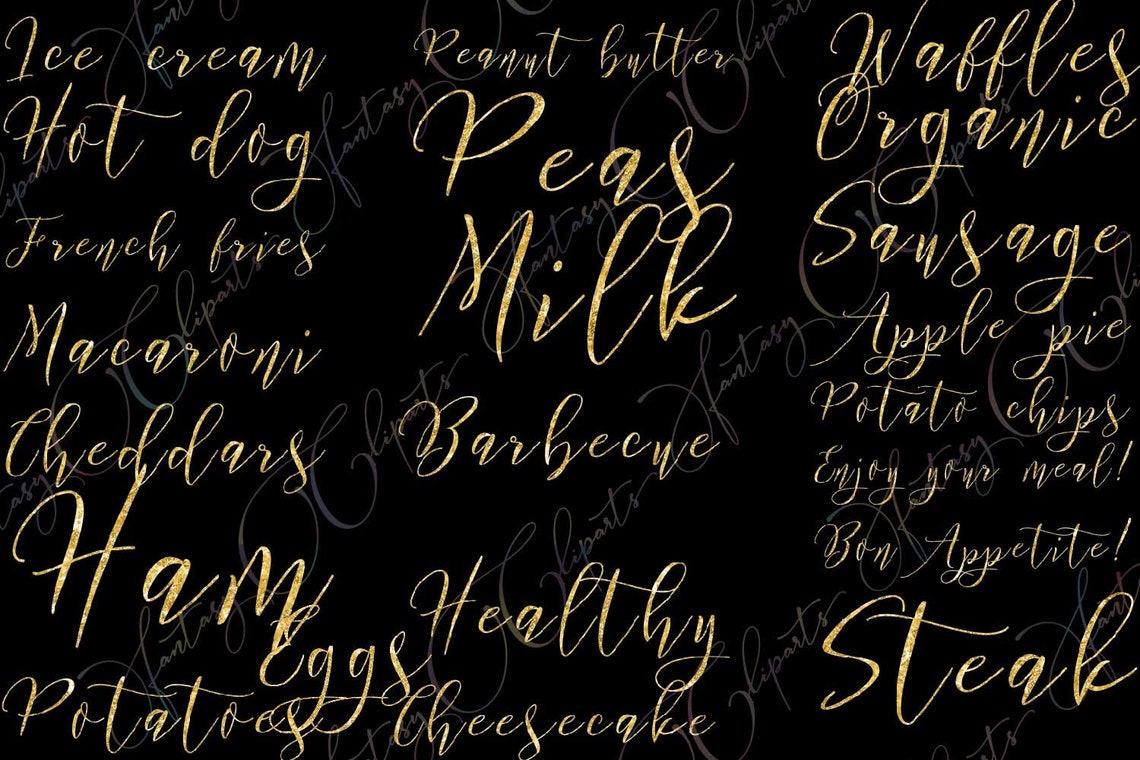 Ice cream
Hot dog
French fries
Macaroni
Cheddars
Ham
Eggs
Potatoes
Peanut butter
Peas
Milk
Barbecue
Healthy
Cheesecake
Waffles
Organic
Sausage
Apple pie
Potato chips
Enjoy your meal!
Bon Appetite!
Steak
Fantasy Cliparts